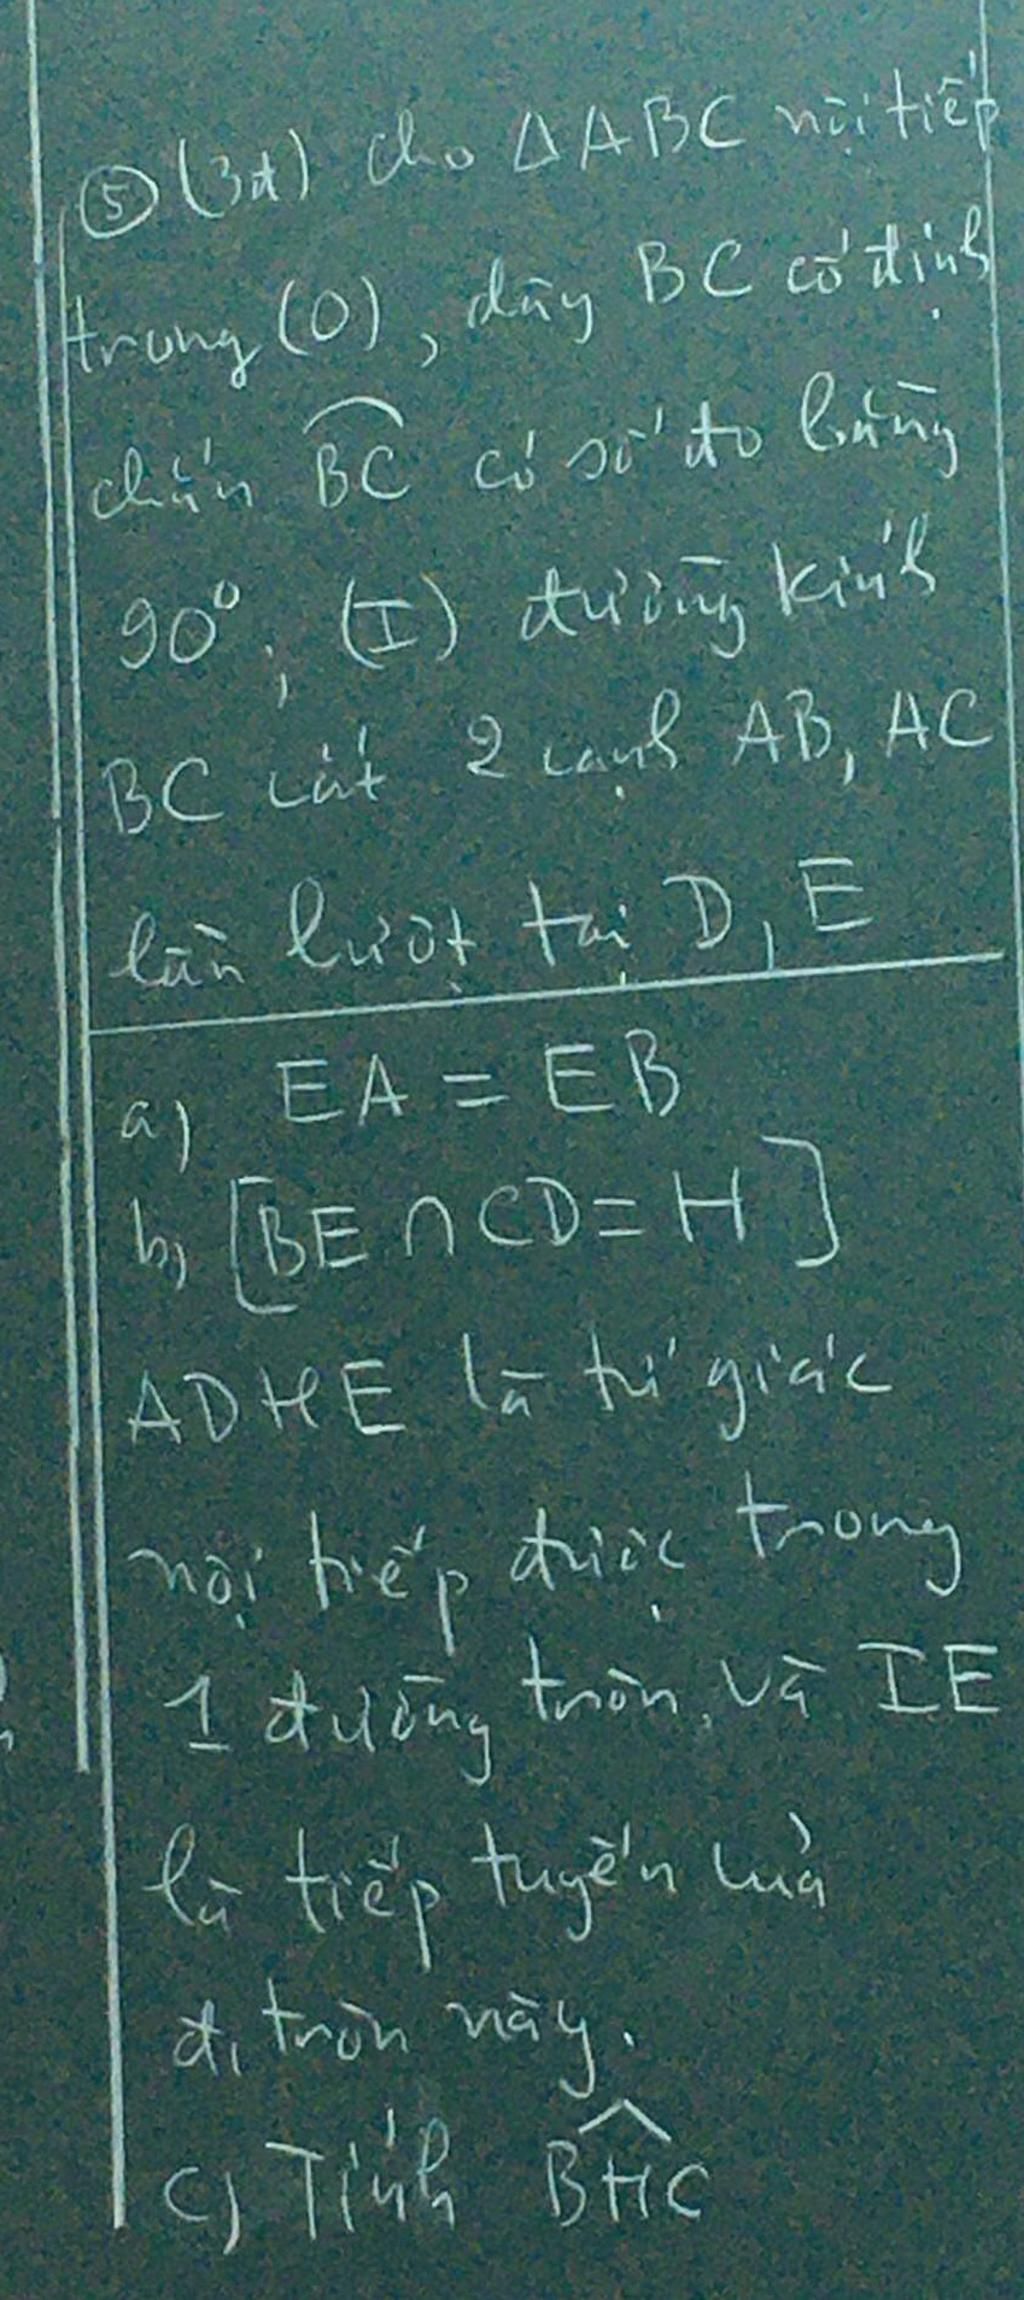 ⑤ (3đ) cho ΔABC nội tiếp
trong (O), dây BC cố định
chắn BC có số đo bằng
90°, (I) đường kính
BC cắt 2 cạnh AB, AC
lần lượt tại D, E
a) EA = EB
b) [BE ∩ CD = H]
ADHE là tứ giác
nội tiếp được trong
1 đường tròn, và IE
là tiếp tuyến của
đ, tròn này.
c) Tính BHC